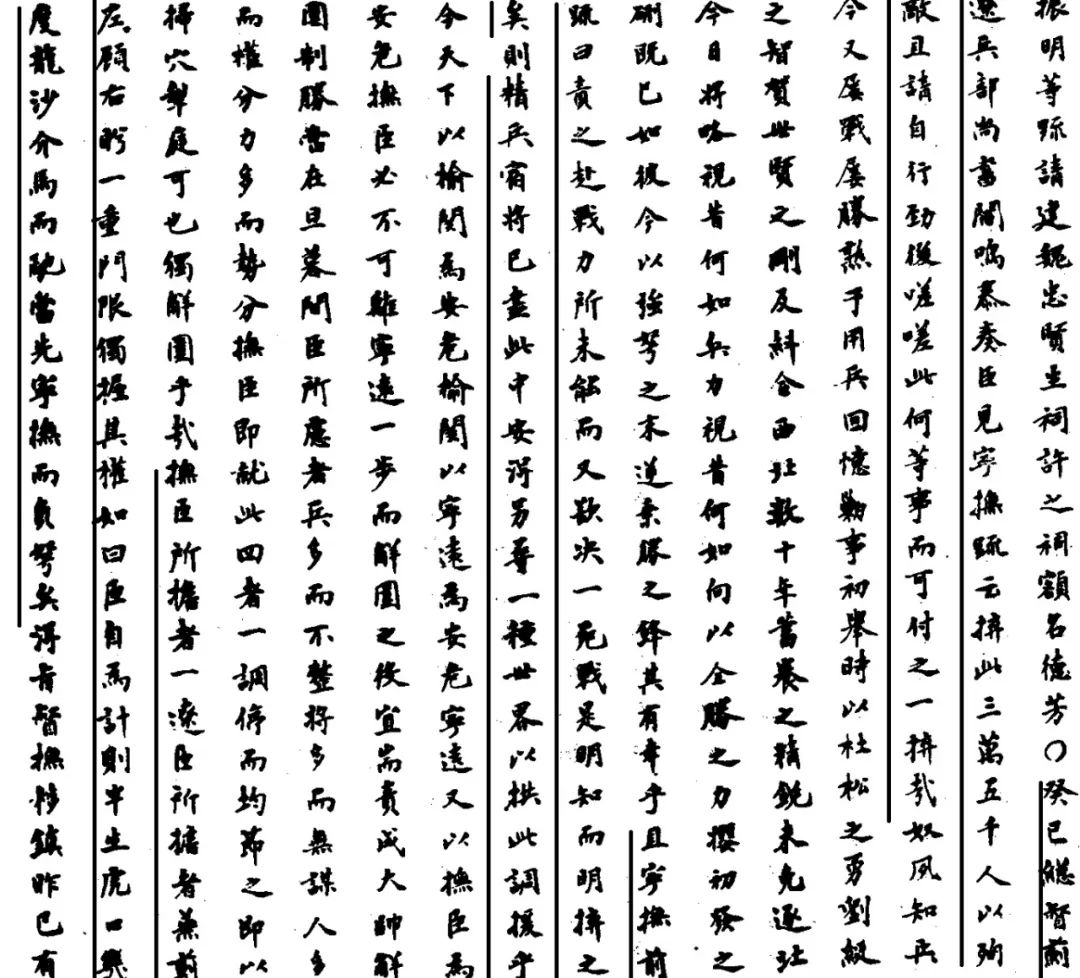 振明等疏請建魏忠賢生祠許之祠額名德芳○癸巳總督薊
遼兵部尚書閻鳴泰奏臣見寧撫疏云拚此三萬五千人以殉
敵且請自行勁後嗟嗟此何等事而可付之一拚哉奴夙知兵
今又屡戰屡勝熟于用兵回憶鞫事初舉時以杜松之勇劉綎
之智賀世賢之剛及糾合西北數十年蓄養之精銳未免逐北
今日將略視昔何如兵力視昔何如向以全勝之力攖初發之
硎既已如彼今以強弩之末逆乘勝之鋒其有幸乎且寧撫前
疏曰責之赴戰力所未能而又欲决一死戰是明知而明拚之
矣則精兵宿將已盡此中安得另尋一種世界以拱此調援乎
今天下以榆関為安危榆関以寧遠為安危寧遠又以撫臣為
安危撫臣必不可離寧遠一步而解圍之役宜耑責成大帥解
圍制勝當在旦暮間臣所慮者兵多而不整將多而無謀人多
而權分力多而勢分撫臣即就此四者一調停而均節之即以
掃穴犂庭可也獨解圍乎哉撫臣所擔者一遼臣所擔者兼薊
左顧右盻一重門限獨握其權如曰臣自為計則半生虎口興
度龍沙介馬而馳當先寧撫而負弩矣得旨督撫移鎮昨已有